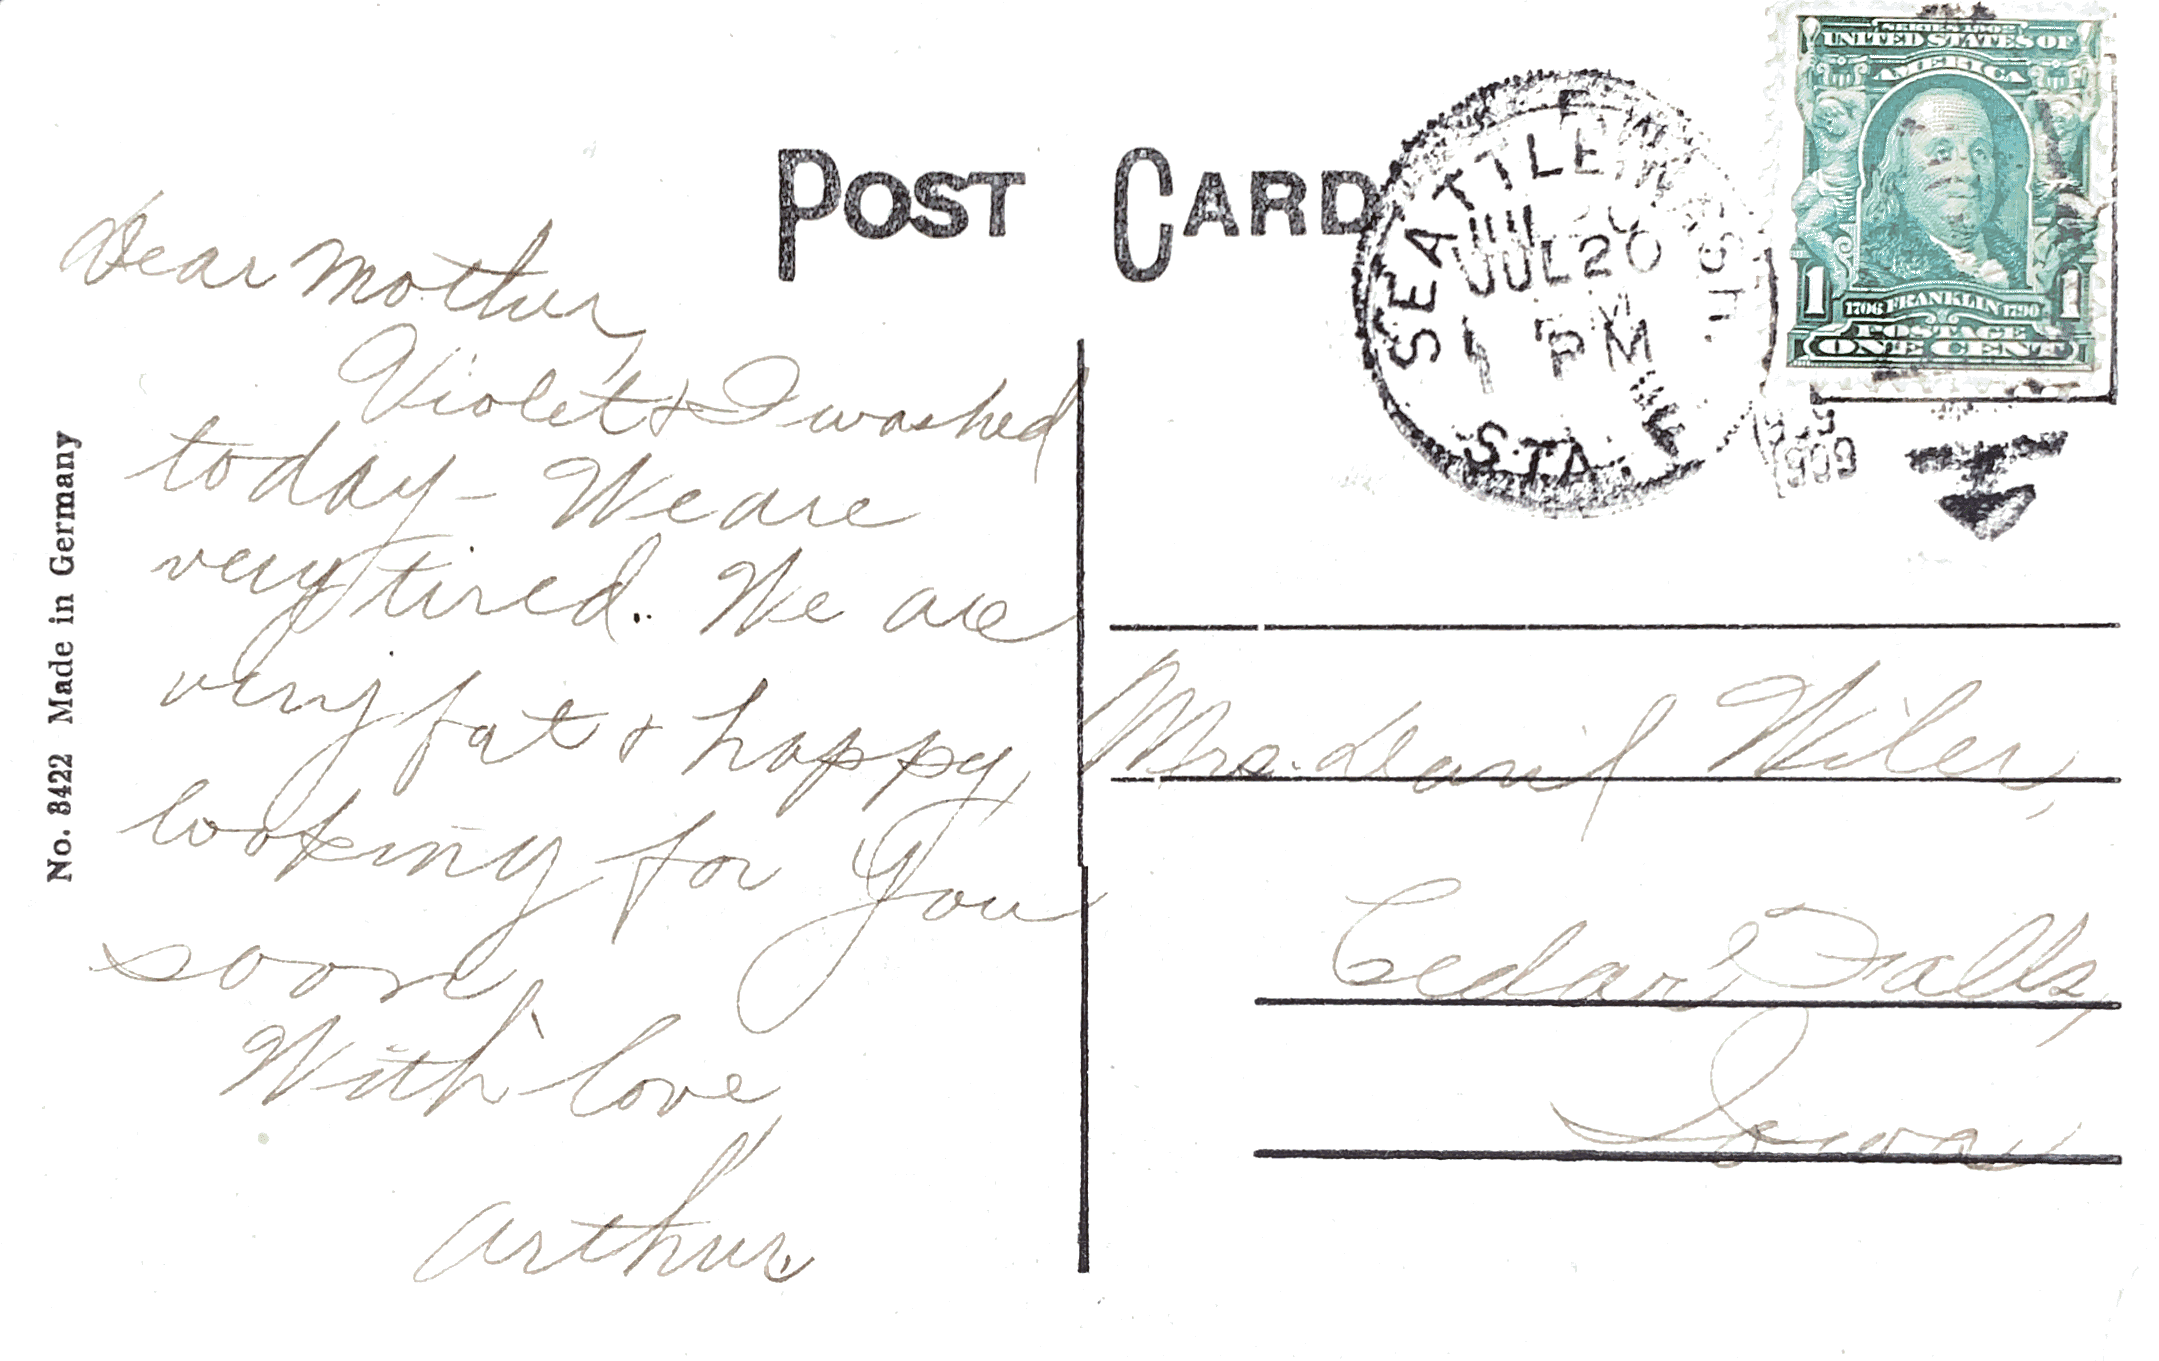 POST CARD
Dear Mother
Violet & I washed
today - We are
very tired. We are
very fat & happy,
looking for you
soon,
With love
Arthur.
No. 8422 Made in Germany
SEATTLE, WASH.
JUL 20
1 PM
STA.
1909
SERIES 1902
UNITED STATES OF
AMERICA
1 1706 FRANKLIN 1790 1
POSTAGE
ONE CENT
Mrs. David Wiler,
Cedar Falls,
Iowa